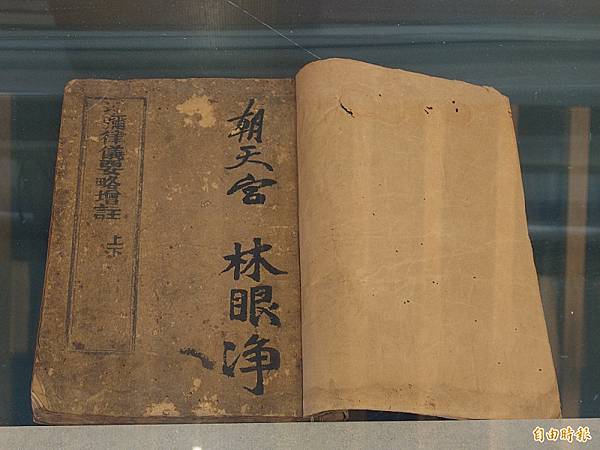 朝天宮 林眼淨
沙彌律儀要略增註 上下
自由時報